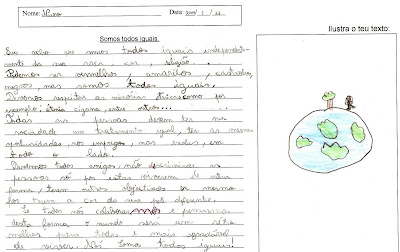 Nome: Nuno Data:
Somos todos iguais
Ilustra o teu texto:
Eu acho que somos todos iguais independente-
mente da sua raça, cor, religião...
Podemos ser vermelhos, amarelos, castanhos,
negros, mas somos todos iguais.
Devemos respeitar as minorias étnicas como por
exemplo: etnia cigana, entre outras...
Todas as pessoas devem ter na
sociedade um tratamento igual, ter as mesmas
oportunidades nos empregos, nas escolas, em
todo o lado.
Devemos todos amigos não discriminar as
pessoas só por estas viverem de outra
forma, terem outros objectivos ou mesmo
por terem a cor da sua pele diferente.
Se todos nós colaborarmos e pensarmos
desta forma o mundo será um sítio
melhor para todos e mais agradável
de viver. Nós somos todos iguais!